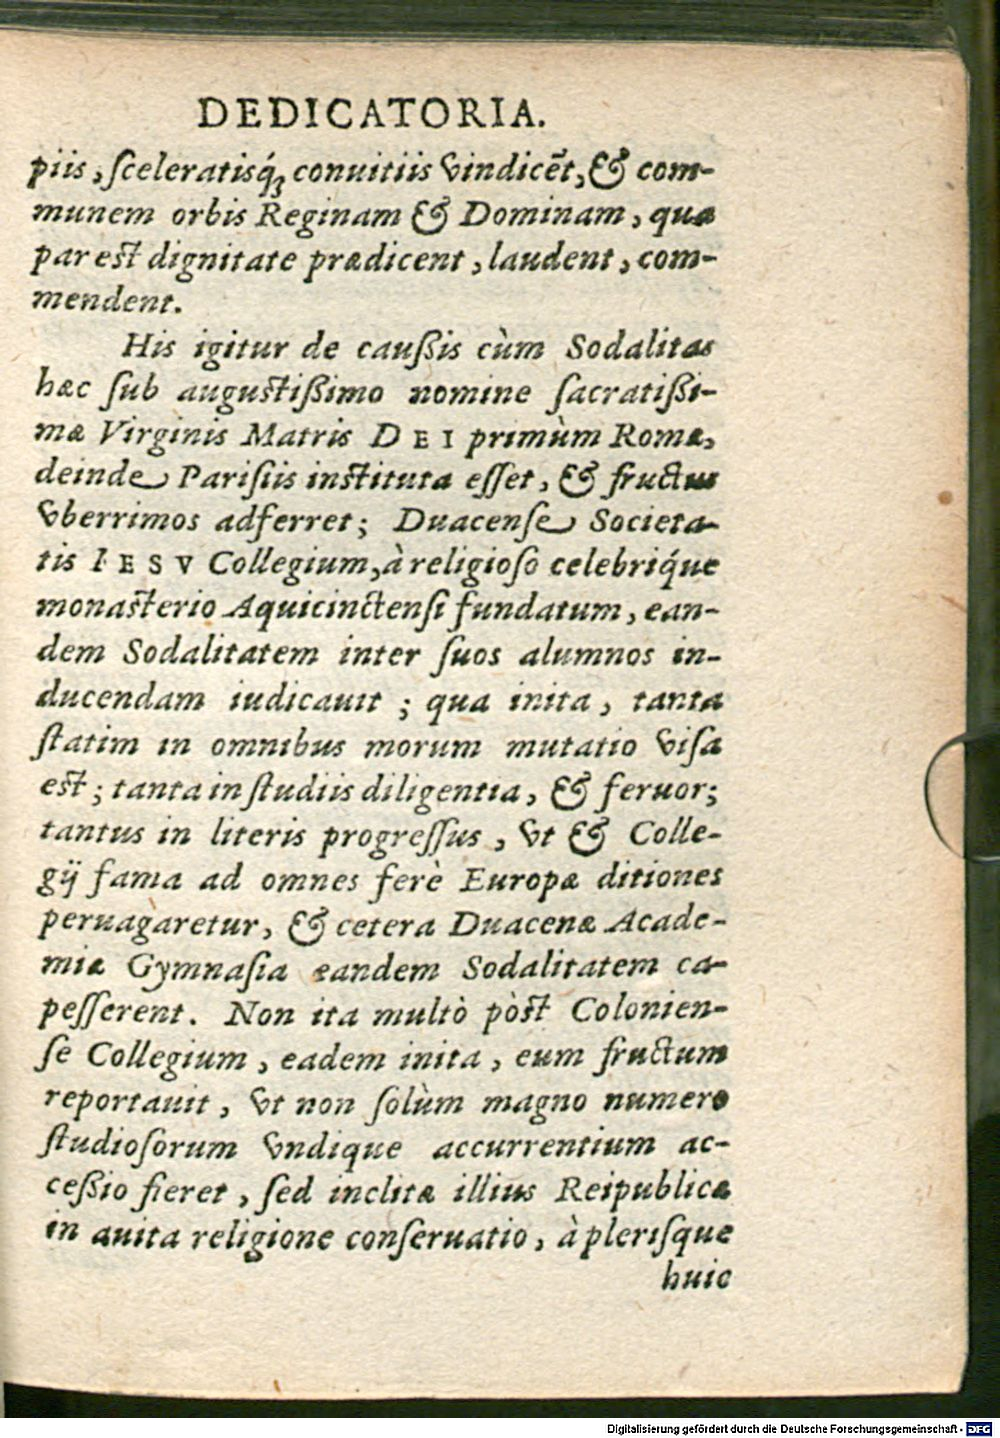 DEDICATORIA.
piis, sceleratisq́ꝫ conuitiis vindicẽt, & com-
munem orbis Reginam & Dominam, qua
par est dignitate prædicent, laudent, com-
mendent.
His igitur de caußis cùm Sodalitas
hæc sub augustißimo nomine sacratißi-
mæ Virginis Matris DEI primùm Romæ,
deinde Parisiis instituta esset, & fructus
vberrimos adferret; Duacense Societa-
tis IESV Collegium, à religioso celebriq́ue
monasterio Aquicinctensi fundatum, ean-
dem Sodalitatem inter suos alumnos in-
ducendam iudicauit; qua inita, tanta
statim in omnibus morum mutatio visa
est; tanta in studiis diligentia, & feruor;
tantus in literis progressus, vt & Colle-
gij fama ad omnes ferè Europæ ditiones
peruagaretur, & cetera Duacenæ Acade-
miæ Gymnasia eandem Sodalitatem ca-
pesserent. Non ita multò pòst Colonien-
se Collegium, eadem inita, eum fructum
reportauit, vt non solùm magno numero
studiosorum vndique accurrentium ac-
ceßio fieret, sed inclitæ illius Reipublicæ
in auita religione conseruatio, à plerisque
huic
Digitalisierung gefördert durch die Deutsche Forschungsgemeinschaft - DFG